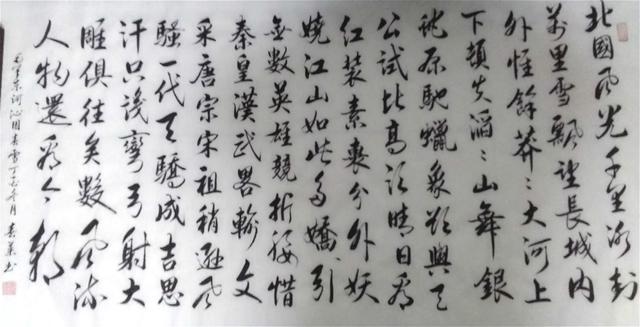 北國風光千里冰封
萬里雪飄望長城內
外惟餘莽々大河上
下頓失滔々山舞銀
蛇原馳蠟象欲與天
公試比高須晴日看
紅裝素裹分外妖
嬈江山如此多嬌引
無數英雄競折腰惜
秦皇漢武畧輸文
采唐宗宋祖稍遜風
騷一代天驕成吉思
汗只識彎弓射大
雕俱往矣數風流
人物還看今朝
毛澤東詞沁園春雪丁酉年月